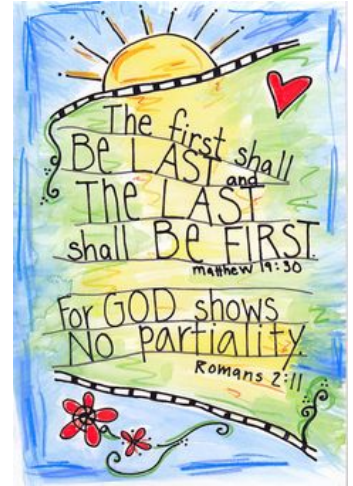 The first shall
Be LAST and
The LAST
shall Be FIRST.
matthew 19:30
For GOD shows
No partiality.
Romans 2:11